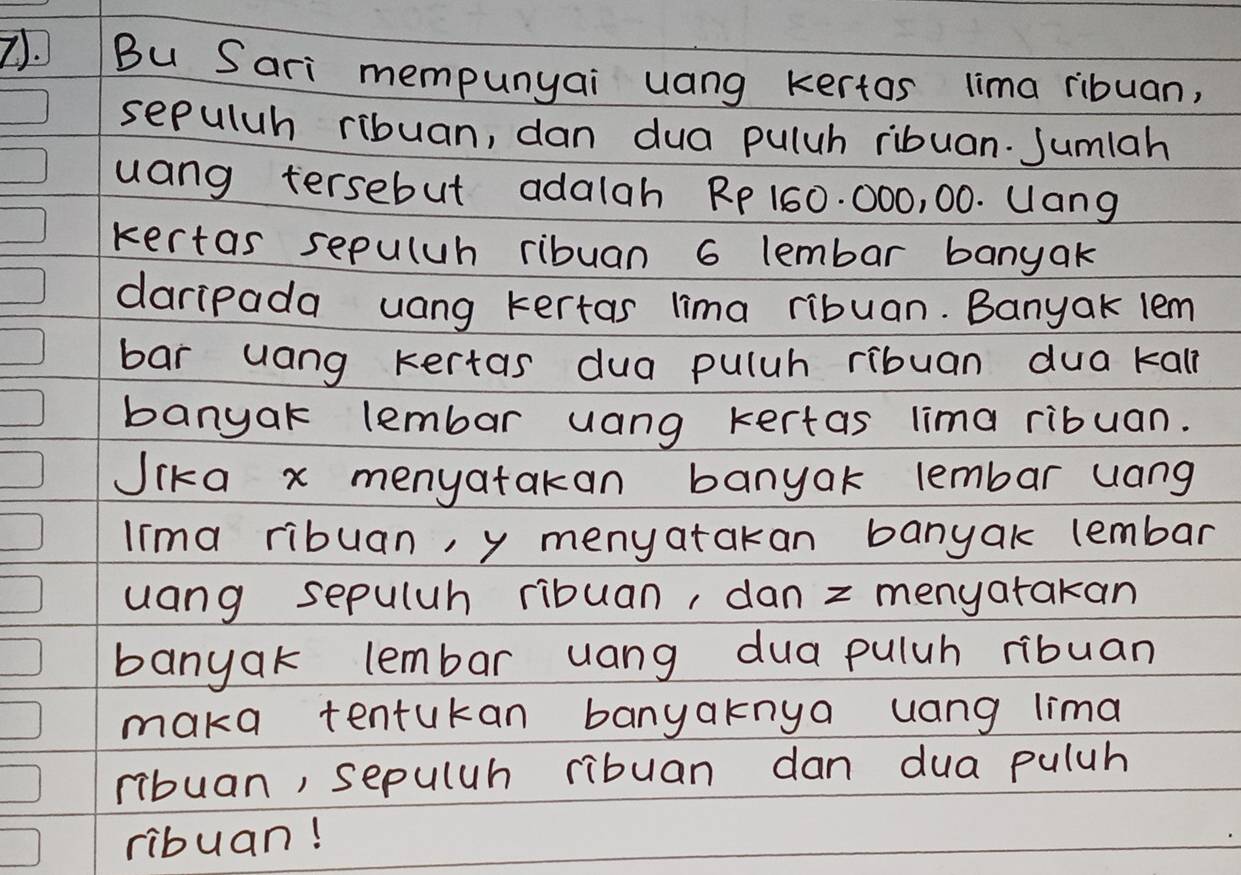 7). Bu Sari mempunyai uang kertas lima ribuan,
sepuluh ribuan, dan dua puluh ribuan. Jumlah
uang tersebut adalah Rp 160.000,00. Uang
kertas sepuluh ribuan 6 lembar banyak
daripada uang kertas lima ribuan. Banyak lem
bar uang kertas dua puluh ribuan dua kali
banyak lembar uang kertas lima ribuan.
Jika x menyatakan banyak lembar uang
lima ribuan, y menyatakan banyak lembar
uang sepuluh ribuan, dan z menyatakan
banyak lembar uang dua puluh ribuan
maka tentukan banyaknya uang lima
ribuan, sepuluh ribuan dan dua puluh
ribuan!